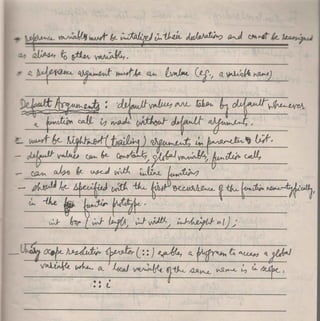 * reference variables must be initialized in their declarations and cannot be reassigned
as aliases to other variables.
* a reference argument must be an lvalue (eg., a variable name)
Default Arguments : default values are taken by default whenever
a function call is made without default arguments.
- must be rightmost (trailing) arguments in parameter list.
- default values can be constants, global variables, function calls
- can also be used with inline functions
- should be specified with the first occurrence of the function name - typically
in the function prototype.
int box (int length, int width, int height = 1);
- Unary scope resolution operator (::) enables a program to access a global
variable when a local variable of the same name is in scope.
:: i